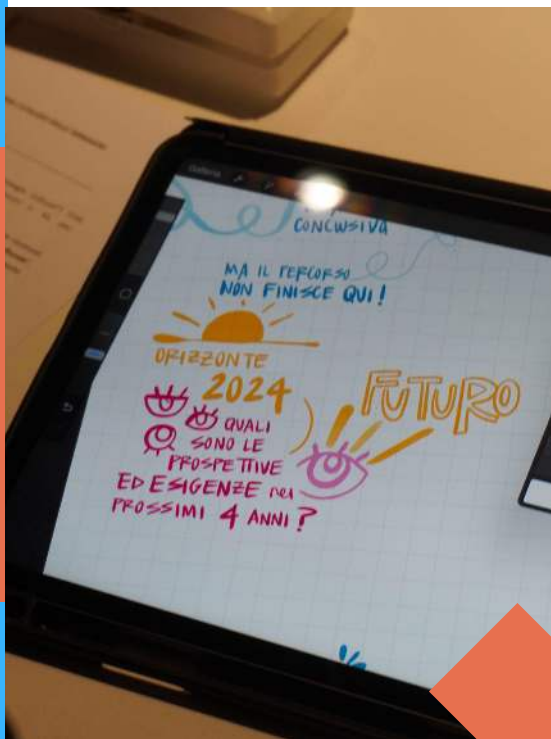 Galleria
CONCLUSIVA
MA IL PERCORSO
NON FINISCE QUI!
ORIZZONTE
2024
FUTURO
QUALI
SONO LE
PROSPETTIVE
ED ESIGENZE nei
PROSSIMI 4 ANNI?